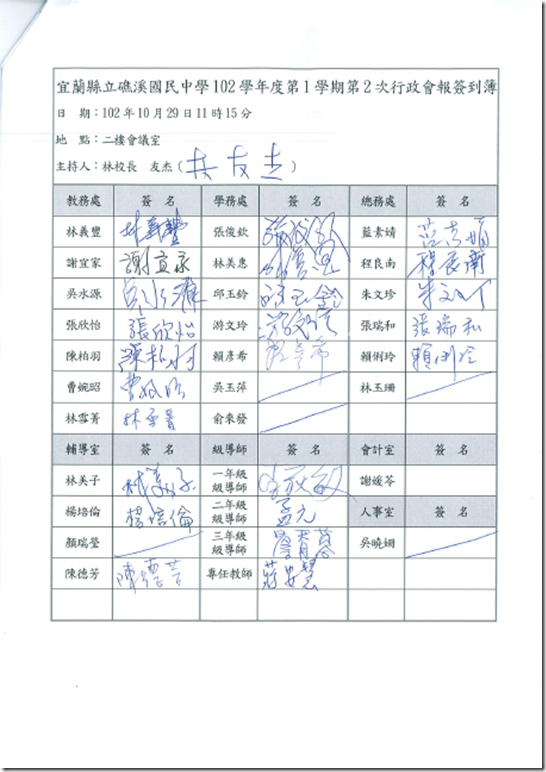 宜蘭縣立礁溪國民中學102學年度第1學期第2次行政會報簽到簿
日 期：102年10月29日11時15分
地 點：二樓會議室
主持人：林校長 友杰（林友杰）
教務處 簽 名 學務處 簽 名 總務處 簽 名
林義豐 林義豐 張俊欽 藍素婧
謝宜家 謝宜家 林美惠 程良南 程良南
吳水源 邱玉鈴 朱文珍
張欣怡 張欣怡 游文玲 張瑞和 張瑞和
陳柏羽 陳柏羽 賴彥希 賴俐玲 賴俐玲
曹婉昭 吳玉萍 林玉珊
林雪菁 俞來發
輔導室 簽 名 級導師 簽 名 會計室 簽 名
林美子 林美子 一年級級導師 謝媛芩
楊培倫 楊培倫 二年級級導師 人事室 簽 名
顏瑞瑩 三年級級導師 吳曉姍
陳德芳 專任教師